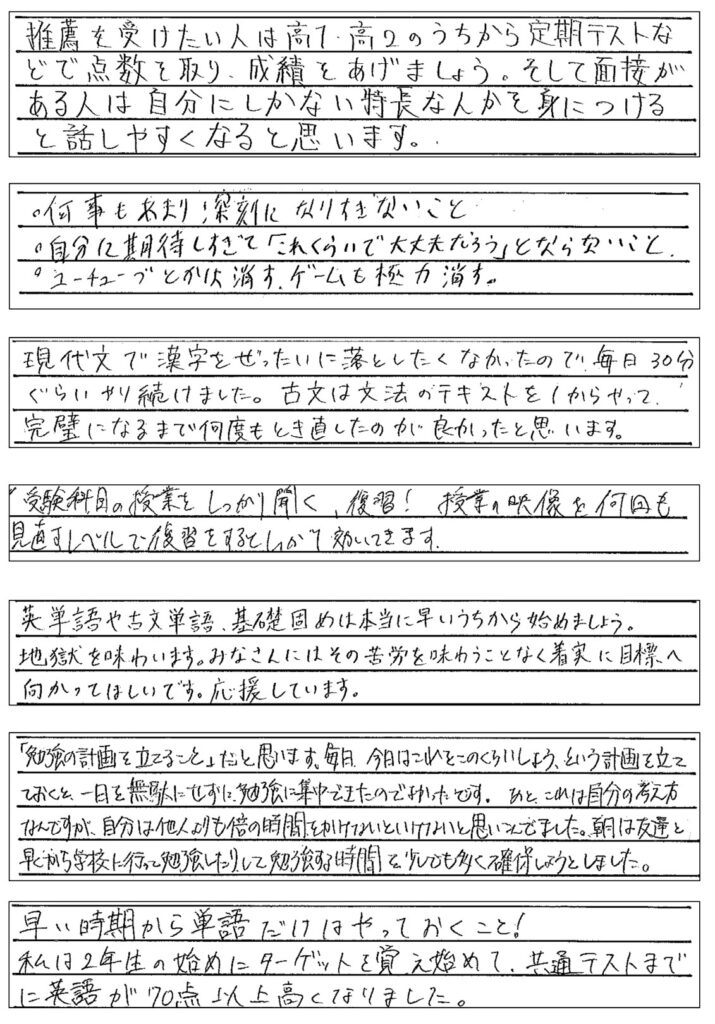 推薦を受けたい人は高1・高2のうちから定期テストな
どで点数を取り、成績をあげましょう。そして面接が
ある人は自分にしかない特長なんかを身につける
と話しやすくなると思います。
○何事もあまり深刻になりすぎないこと
○自分に期待しすぎて「これくらいで大丈夫だろう」とならないこと、
○ユーチューブとかは消す、ゲームも極力消す。
現代文で漢字をぜったいに落としたくなかったので、毎日30分
ぐらいやり続けました。古文は文法のテキストを1からやって、
完璧になるまで何度もとき直したのが良かったと思います。
受験科目の授業をしっかり聞く、復習! 授業の映像を何回も
見直すレベルで復習をするとしっかり効いてきます。
英単語や古文単語、基礎固めは本当に早いうちから始めましょう。
地獄を味わいます。みなさんにはその苦労を味わうことなく着実に目標へ
向かってほしいです。応援しています。
「勉強の計画を立てること」だと思います。毎日、今日はこれをこのくらいしよう、という計画を立て
ておくと、一日を無駄にせずに、勉強に集中できたのでよかったです。 あと、これは自分の考え方
なんですが、自分は他人よりも倍の時間をかけないといけないと思いこんでました。朝は友達と
早くから学校に行って勉強したりして勉強する時間を少しでも多く確保しようとしました。
早い時期から単語だけはやっておくこと!
私は2年生の始めにターゲットを覚え始めて、共通テストまで
に英語が70点以上高くなりました。